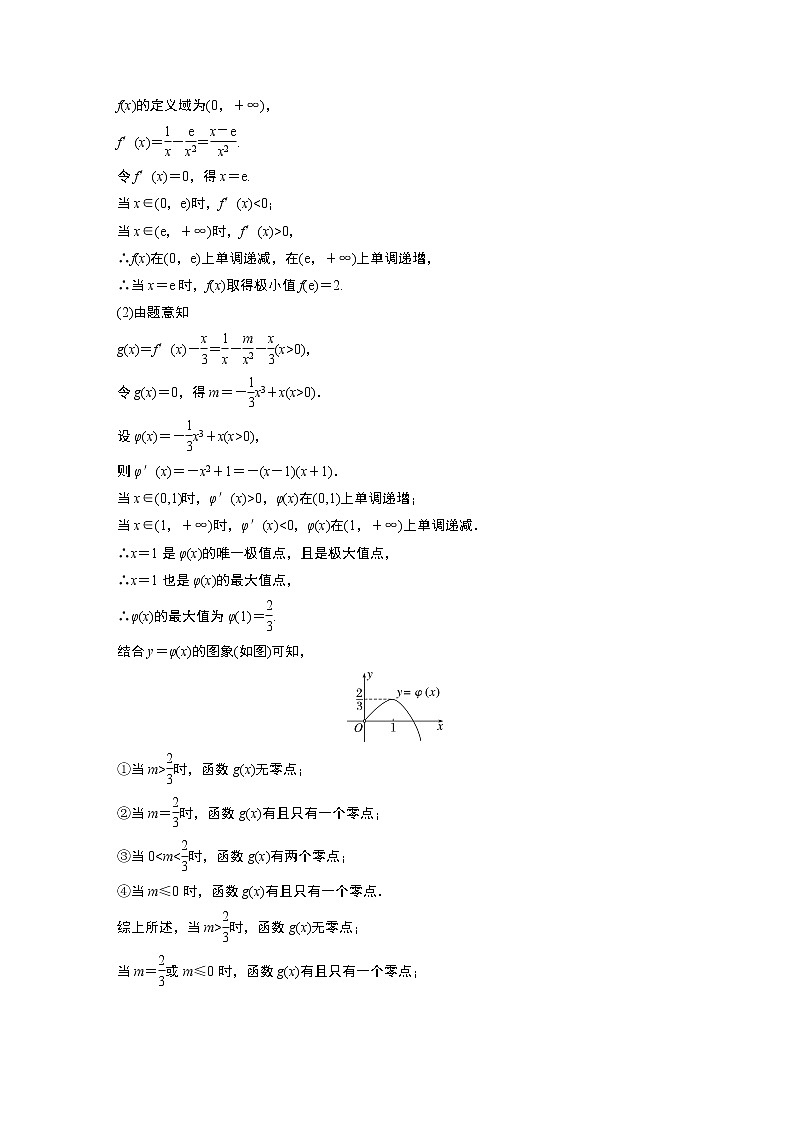 f(x)的定义域为(0，＋∞)，
f′(x)＝1/x－e/x²＝(x－e)/x².
令f′(x)＝0，得x＝e.
当x∈(0，e)时，f′(x)<0；
当x∈(e，＋∞)时，f′(x)>0，
∴f(x)在(0，e)上单调递减，在(e，＋∞)上单调递增，
∴当x＝e时，f(x)取得极小值f(e)＝2.
(2)由题意知
g(x)＝f′(x)－x/3＝1/x－m/x²－x/3(x>0)，
令g(x)＝0，得m＝－1/3x³＋x(x>0)．
设φ(x)＝－1/3x³＋x(x>0)，
则φ′(x)＝－x²＋1＝－(x－1)(x＋1)．
当x∈(0,1)时，φ′(x)>0，φ(x)在(0,1)上单调递增；
当x∈(1，＋∞)时，φ′(x)<0，φ(x)在(1，＋∞)上单调递减．
∴x＝1是φ(x)的唯一极值点，且是极大值点，
∴x＝1也是φ(x)的最大值点，
∴φ(x)的最大值为φ(1)＝2/3.
结合y＝φ(x)的图象(如图)可知，
y
2/3
y=φ(x)
O 1 x
①当m>2/3时，函数g(x)无零点；
②当m＝2/3时，函数g(x)有且只有一个零点；
③当0<m<2/3时，函数g(x)有两个零点；
④当m≤0时，函数g(x)有且只有一个零点．
综上所述，当m>2/3时，函数g(x)无零点；
当m＝2/3或m≤0时，函数g(x)有且只有一个零点；